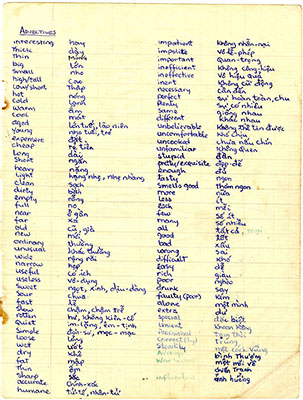 ADJECTIVES
interesting hay
thick dày
thin mỏng
big lớn
small nhỏ
high/tall cao
low/short thấp
hot nóng
cold lạnh
warm ấm
cool mát
aged lớn tuổi, lão niên
young nhỏ tuổi, trẻ
expensive đắt
cheap rẻ tiền
long dài
short ngắn
heavy nặng
light nhẹ nhàng
clean sạch
dirty bẩn
empty rỗng
full no
near ở gần
far xa
old cũ, già
new mới
ordinary thường
unusual khác thường
wide rộng rãi
narrow hẹp
useful có ích
useless vô-dụng
sweet ngọt, xinh, dịu-dàng
sour chua
fast lẹ
slow chậm, chậm trễ
rotten hư, không kiên-cố
quiet im-lặng, êm-tịnh
Simple đơn-sơ, mạc-mạc
loose lỏng
wet ướt
dry khô
fat mập
thin ốm
sharp sắc
accurate chính-xác
humane tử-tế, nhân-từ
impatient không nhẫn-nại
impolite vô lễ-phép
important quan-trọng
inefficient không công-hiệu
ineffective vô hiệu quả
inert không cử động
necessary cần đến
perfect sự hoàn toàn, chu
plenty sự có nhiều
same giống nhau
different khác nhau
unbelievable không thể tin được
uncomfortable khó chịu
uncooked chưa nấu chín
unfamiliar không quen
stupid đần
pretty/exquisite đẹp-đẽ
enough đủ
tasty ngon
smells good thơm ngon
more nữa
less ít
each mỗi
few số ít
many số nhiều
all tất cả
good tốt
bad xấu
wrong sai
difficult khó
easy dễ
rich giàu
poor nghèo
drunk say
faulty (poor) kém
alone một mình
extra dư
special đặc biệt
correct(ly) trúng
Average bình thường
influential ảnh hưởng